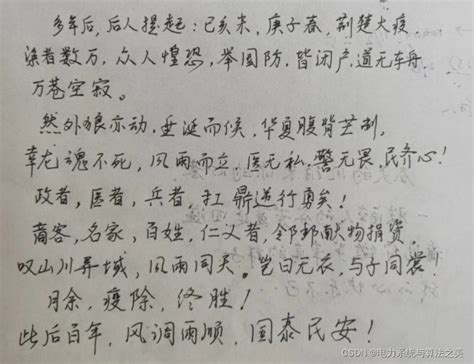 多年后，后人提起：已亥末，庚子春，荆楚大疫，
染者数万，众人惶恐，举国防，皆闭户，道无车舟，
万巷空寂。
然外狼亦动，垂涎而候，华夏腹背芒刺，
幸龙魂不死，风雨而立，医无私，警无畏，民齐心！
政者，医者，兵者，扛鼎逆行勇矣！
商客，名家，百姓，仁义者，邻邦献物捐资，
叹山川异域，风雨同天。岂曰无衣，与子同裳！
月余，疫除，终胜！
此后百年，风调雨顺，国泰民安！
CSDN @电力系统与算法之美